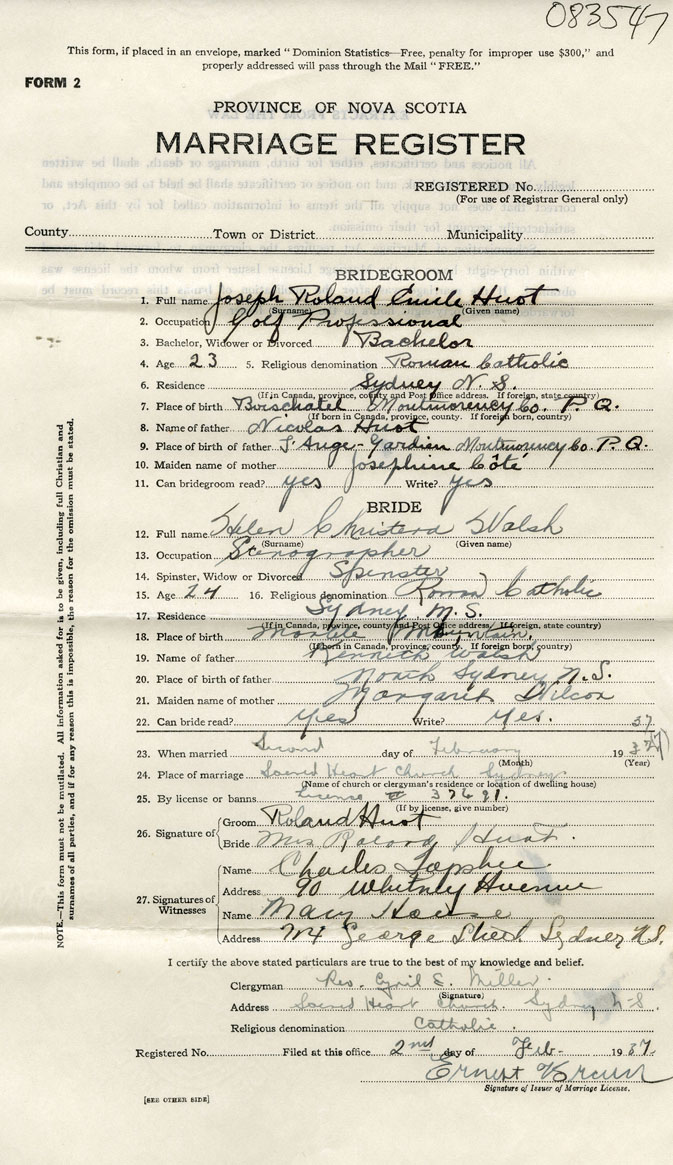 083547
This form, if placed in an envelope, marked "Dominion Statistics—Free, penalty for improper use $300," and
properly addressed will pass through the Mail "FREE."
FORM 2
PROVINCE OF NOVA SCOTIA
MARRIAGE REGISTER
REGISTERED No.
(For use of Registrar General only)
County Town or District Municipality
BRIDEGROOM
1. Full name Joseph Roland Emile Huot
(Surname) (Given name)
2. Occupation Golf Professional
3. Bachelor, Widower or Divorced Bachelor
4. Age 23 5. Religious denomination Roman Catholic
6. Residence Sydney N. S.
(If in Canada, province, county and Post Office address. If foreign, state country)
7. Place of birth Boischatel Montmorency Co. P. Q.
(If born in Canada, province, county. If foreign born, country)
8. Name of father Nicolas Huot
9. Place of birth of father L'Ange-Gardien Montmorency Co. P. Q.
10. Maiden name of mother Josephine Côté
11. Can bridegroom read? yes Write? yes
BRIDE
12. Full name Helen Christena Walsh
(Surname) (Given name)
13. Occupation Stenographer
14. Spinster, Widow or Divorced Spinster
15. Age 24 16. Religious denomination Roman Catholic
17. Residence Sydney N. S.
(If in Canada, province, county and Post Office address. If foreign, state country)
18. Place of birth Mountain,
(If born in Canada, province, county. If foreign born, country)
19. Name of father Walsh
20. Place of birth of father North Sydney N. S.
21. Maiden name of mother Margaret Wilcox
22. Can bride read? Yes Write? Yes. 37
23. When married Second day of February 19
(Month) (Year)
24. Place of marriage Sacred Heart Church Sydney
(Name of church or clergyman's residence or location of dwelling house)
25. By license or banns License # 37691.
(If by license, give number)
26. Signature of Groom Roland Huot
Bride Mrs Roland Huot.
27. Signatures of Witnesses
Name Charles
Address 90 Whitney Avenue
Name Mary
Address George Street Sydney N.S.
I certify the above stated particulars are true to the best of my knowledge and belief.
Clergyman Rev. Cyril E. Miller.
(Signature)
Address Sacred Heart Church. Sydney N-S.
Religious denomination Catholic.
Registered No. Filed at this office 2nd day of Feb- 1937.
Ernest
Signature of Issuer of Marriage License.
[SEE OTHER SIDE]
NOTE.—This form must not be mutilated. All information asked for is to be given, including full Christian and
surnames of all parties, and if for any reason this is impossible, the reason for the omission must be stated.